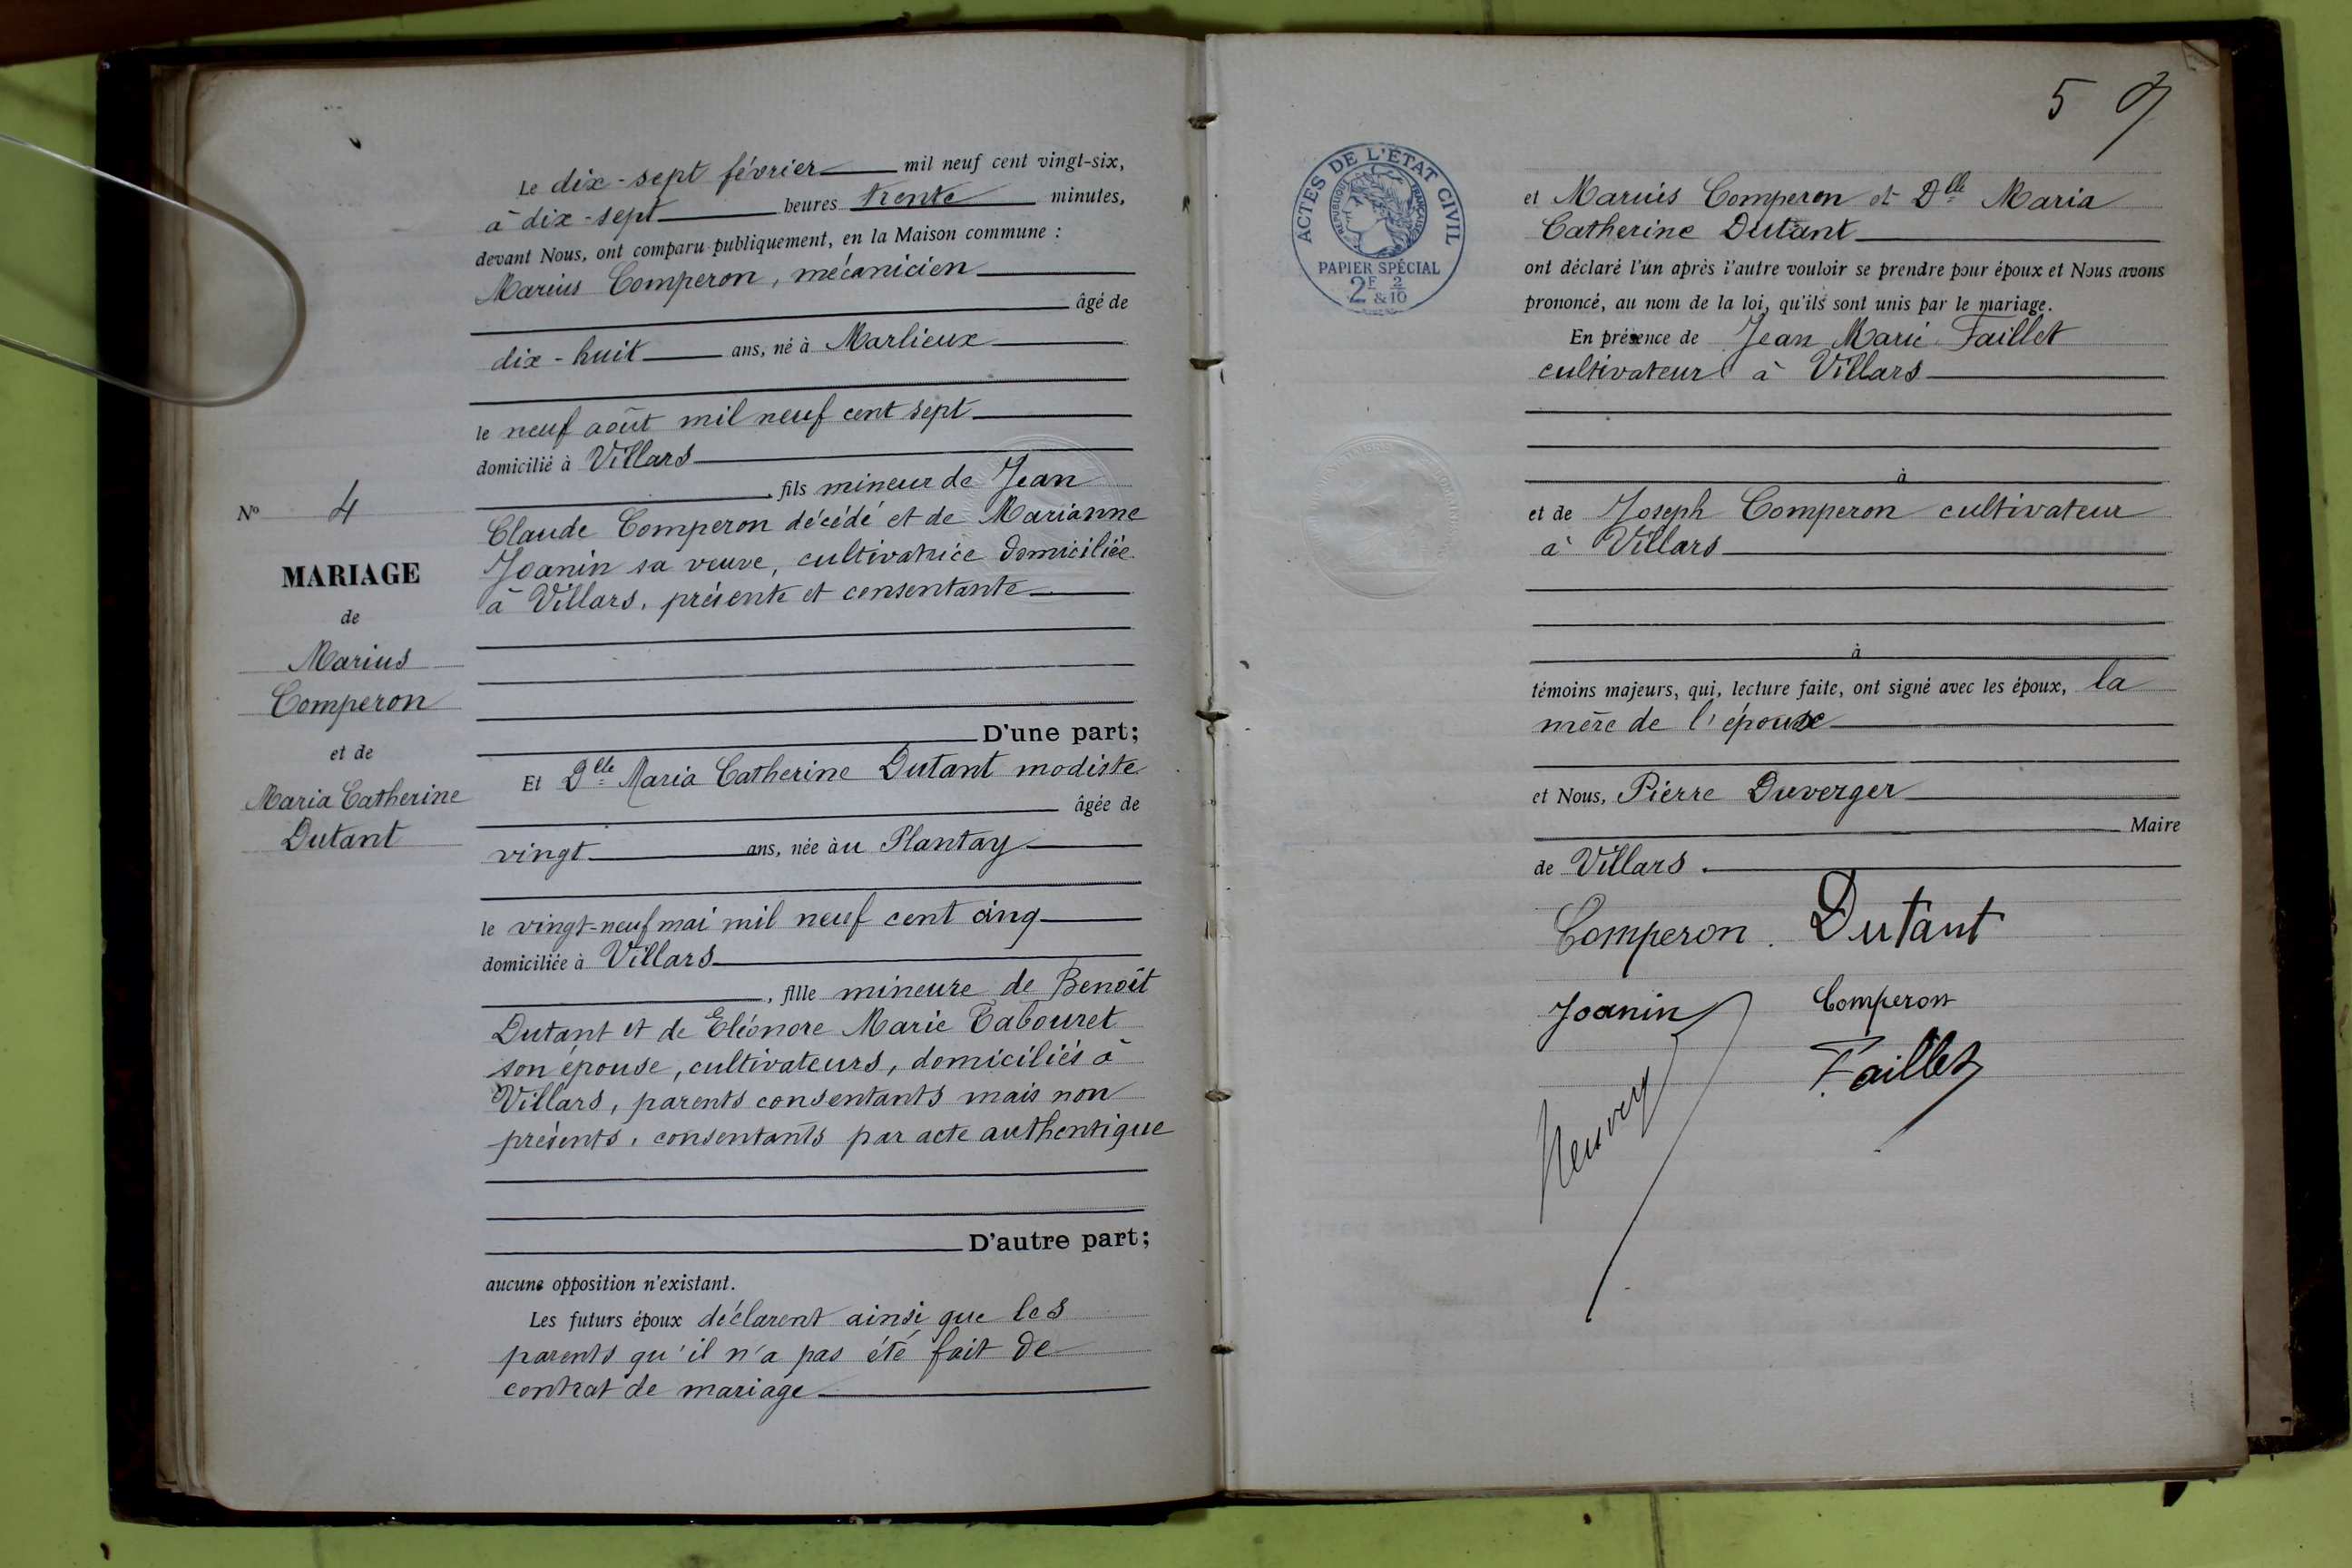 Le dix-sept février mil neuf cent vingt-six,
à dix-sept heures trente minutes,
devant Nous, ont comparu publiquement, en la Maison commune :
Marius Comperon, mécanicien
âgé de
dix-huit ans, né à Marlieux
le neuf août mil neuf cent sept
domicilié à Villars
, fils mineur de Jean
Claude Comperon décédé et de Marianne
Joanin sa veuve, cultivatrice domiciliée
à Villars, présente et consentante
D'une part;
Et Dlle Maria Catherine Dutant modiste
âgée de
vingt ans, née au Plantay
le vingt-neuf mai mil neuf cent cinq
domiciliée à Villars
, fille mineure de Benoît
Dutant et de Eléonore Marie Tabouret
son épouse, cultivateurs, domiciliés à
Villars, parents consentants mais non
présents, consentants par acte authentique
D'autre part;
aucune opposition n'existant.
Les futurs époux déclarent ainsi que les
parents qu'il n'a pas été fait de
contrat de mariage
No 4
MARIAGE
de
Marius
Comperon
et de
Maria Catherine
Dutant
5
ACTES DE L'ÉTAT CIVIL
REPUBLIQUE FRANÇAISE
PAPIER SPÉCIAL
2F & 2/10
et Marius Comperon et Dlle Maria
Catherine Dutant
ont déclaré l'un après l'autre vouloir se prendre pour époux et Nous avons
prononcé, au nom de la loi, qu'ils sont unis par le mariage.
En présence de Jean Marie Faillet
cultivateur à Villars
à
et de Joseph Comperon cultivateur
à Villars
à
témoins majeurs, qui, lecture faite, ont signé avec les époux, la
mère de l'époux
et Nous, Pierre Duverger
Maire
de Villars.
Comperon. Dutant
Joanin Comperon
Faillet